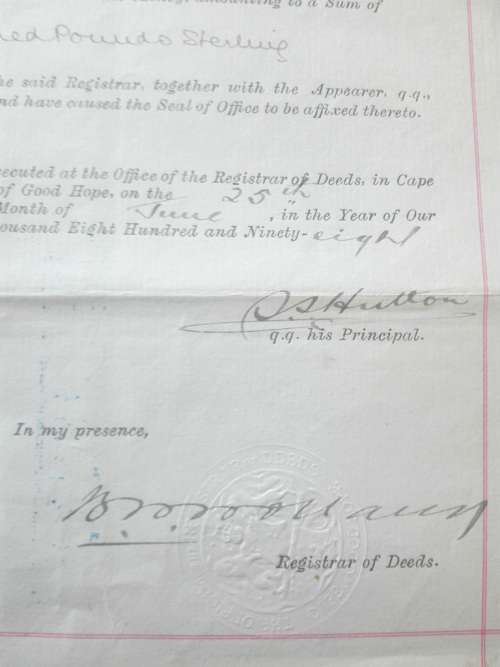 amounting to a Sum of
red Pounds Sterling
he said Registrar, together with the Appearer, q.q.,
nd have caused the Seal of Office to be affixed thereto.
xecuted at the Office of the Registrar of Deeds, in Cape
of Good Hope, on the 25th
Month of June, in the Year of Our
housand Eight Hundred and Ninety-eight
Hutton
q.q. his Principal.
In my presence,
Registrar of Deeds.